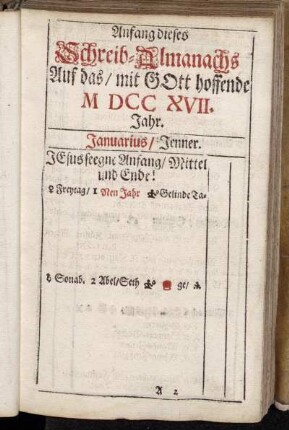 Anfang dieses
Schreib-Almanachs
Auf das / mit GOtt hoffende
M DCC XVII.
Jahr.
Januarius / Jenner.
JEsus seegne Anfang / Mittel
und Ende!
♀ Freytag / 1 Neu Jahr Gelinde Ta-
♄ Sonab. 2 Abel / Seth ge /
A 2